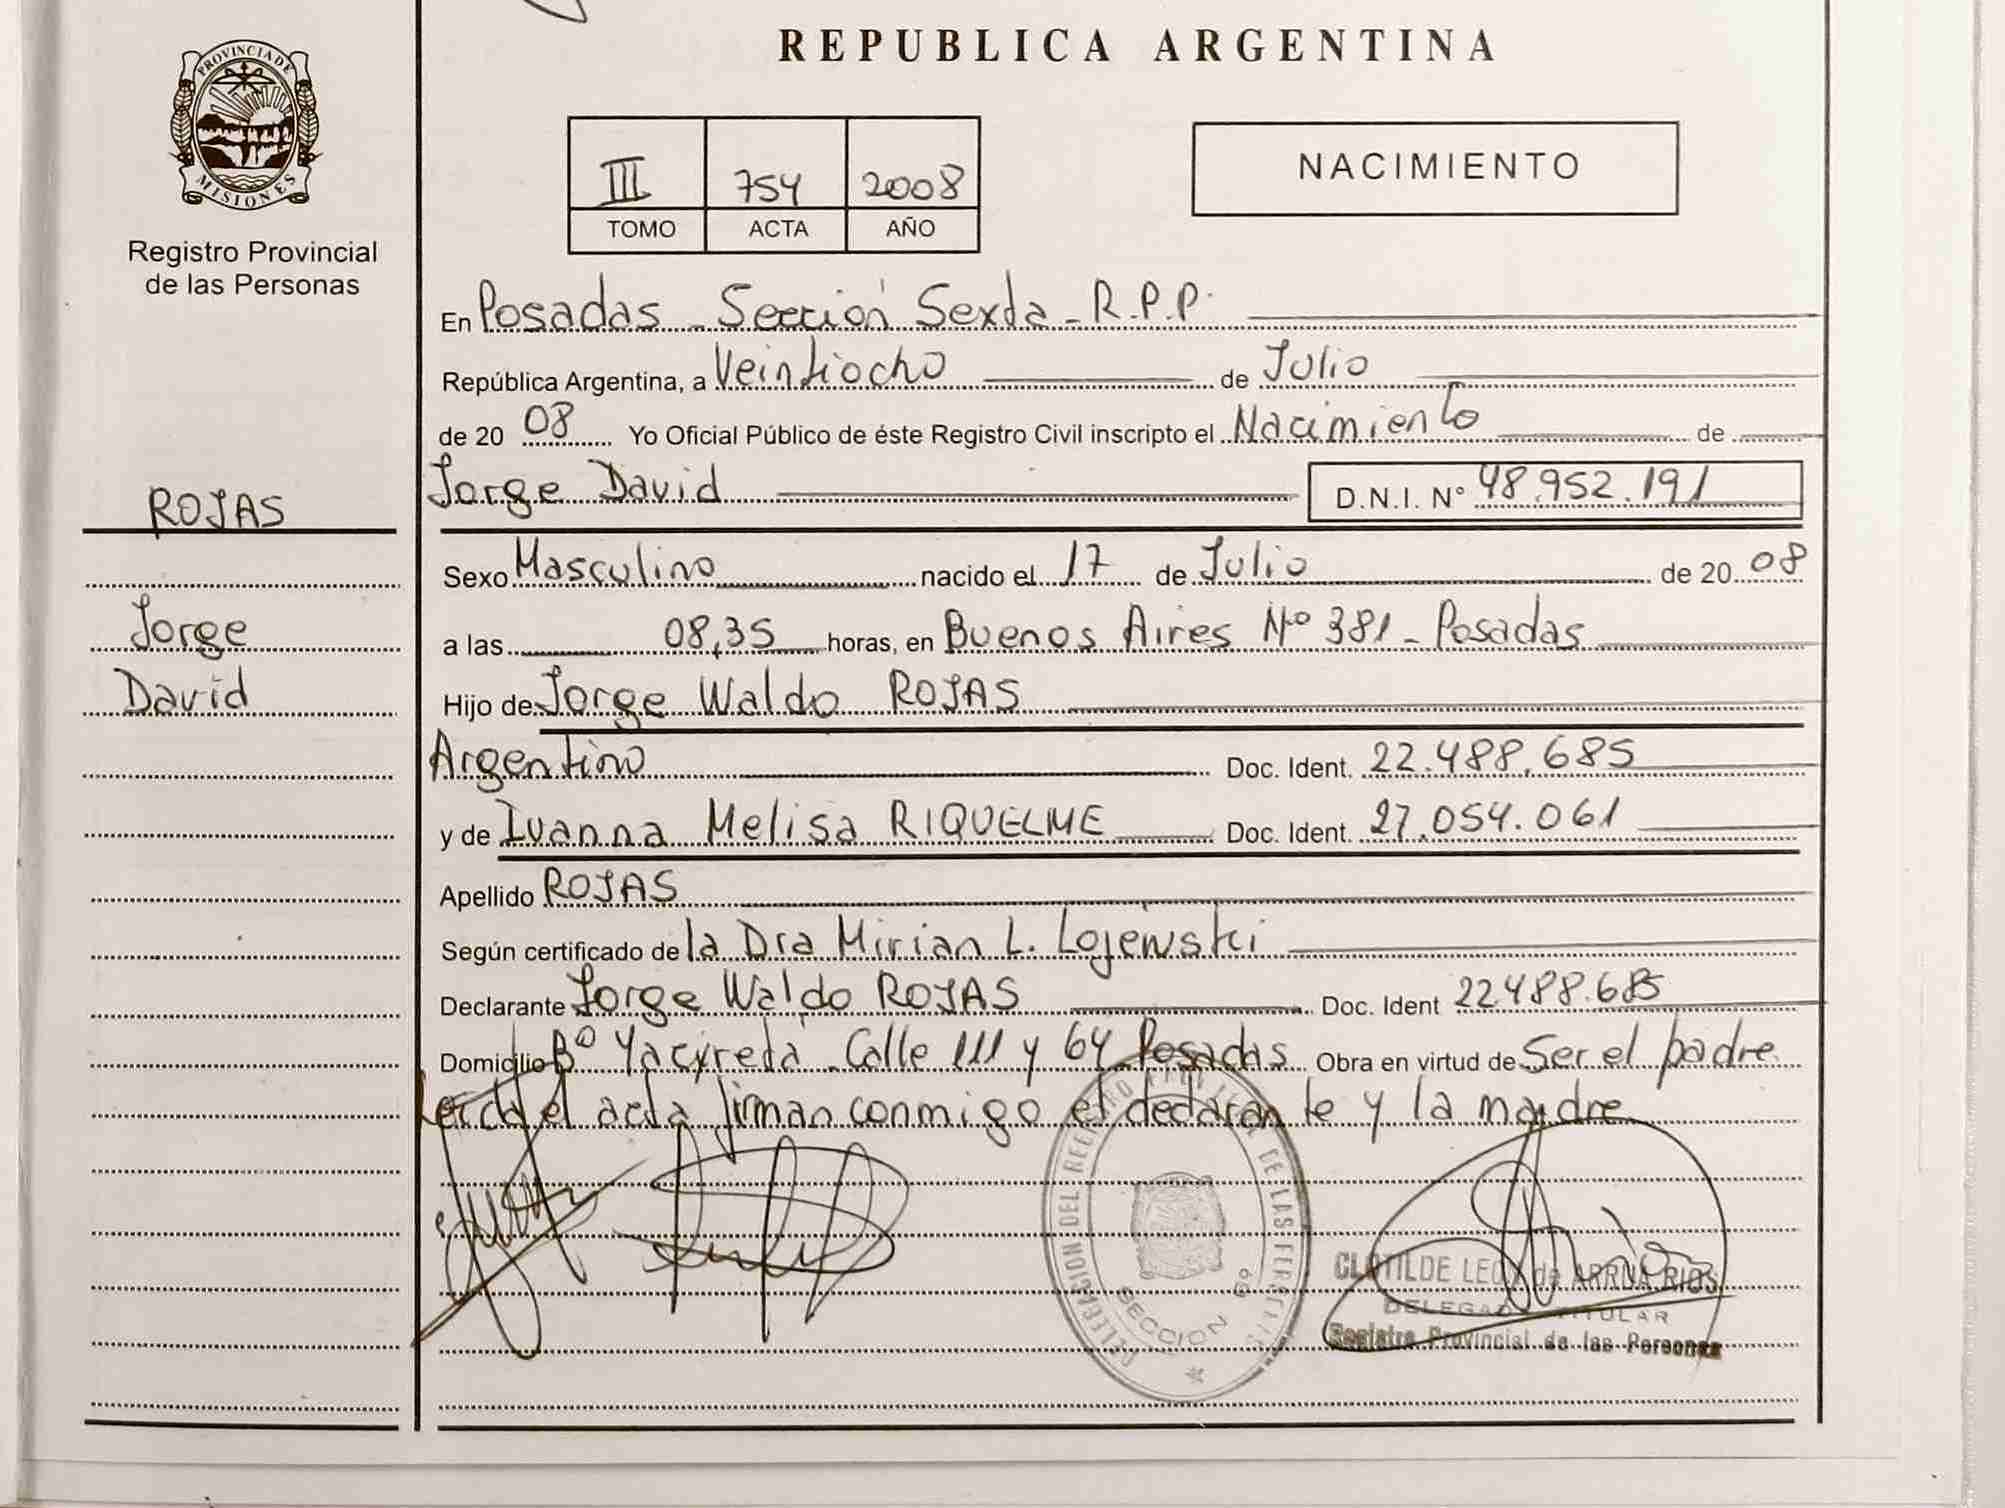 PROVINCIA DE
MISIONES
Registro Provincial
de las Personas
ROJAS
Jorge
David
REPUBLICA ARGENTINA
III 754 2008
TOMO ACTA AÑO
NACIMIENTO
En Posadas - Sección Sexta - R.P.P.
República Argentina, a Veintiocho de Julio
de 20 08 Yo Oficial Público de éste Registro Civil inscripto el Nacimiento de
Jorge David D.N.I. N° 48.952.191
Sexo Masculino nacido el 17 de Julio de 20 08
a las 08,35 horas, en Buenos Aires Nº 381 - Posadas
Hijo de Jorge Waldo ROJAS
Argentino Doc. Ident. 22.488.685
y de Ivanna Melisa RIQUELME Doc. Ident. 27.054.061
Apellido ROJAS
Según certificado de la Dra Mirian L. Lojewski
Declarante Jorge Waldo ROJAS Doc. Ident 22.488.685
Domicilio Bº Yacyretá - Calle 111 y 64 Posadas Obra en virtud de Ser el padre
Leida el acta firman conmigo el declarante y la madre
DELEGACION DEL REGISTRO DE LAS
SECCION 6º
CLOTILDE de ARRUA RIOS
DELEGADA TITULAR
Registro Provincial de las Personas